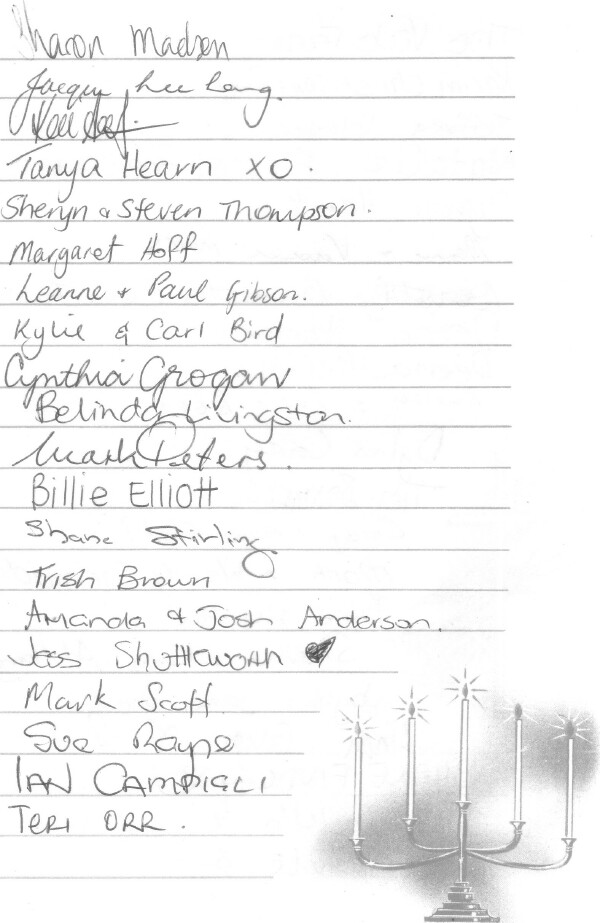 Sharon Madsen
Jacqui Lee Long.
Tanya Hearn XO.
Sheryn & Steven Thompson.
Margaret Hoff
Leanne & Paul Gibson.
Kylie & Carl Bird
Cynthia Grogan
Belinda Livingston.
Mark Peters.
Billie Elliott
Shane Stirling
Trish Brown
Amanda & Josh Anderson.
Jess Shuttleworth ♥
Mark Scott
Sue Rayne
IAN CAMPIGLI
TERI ORR.